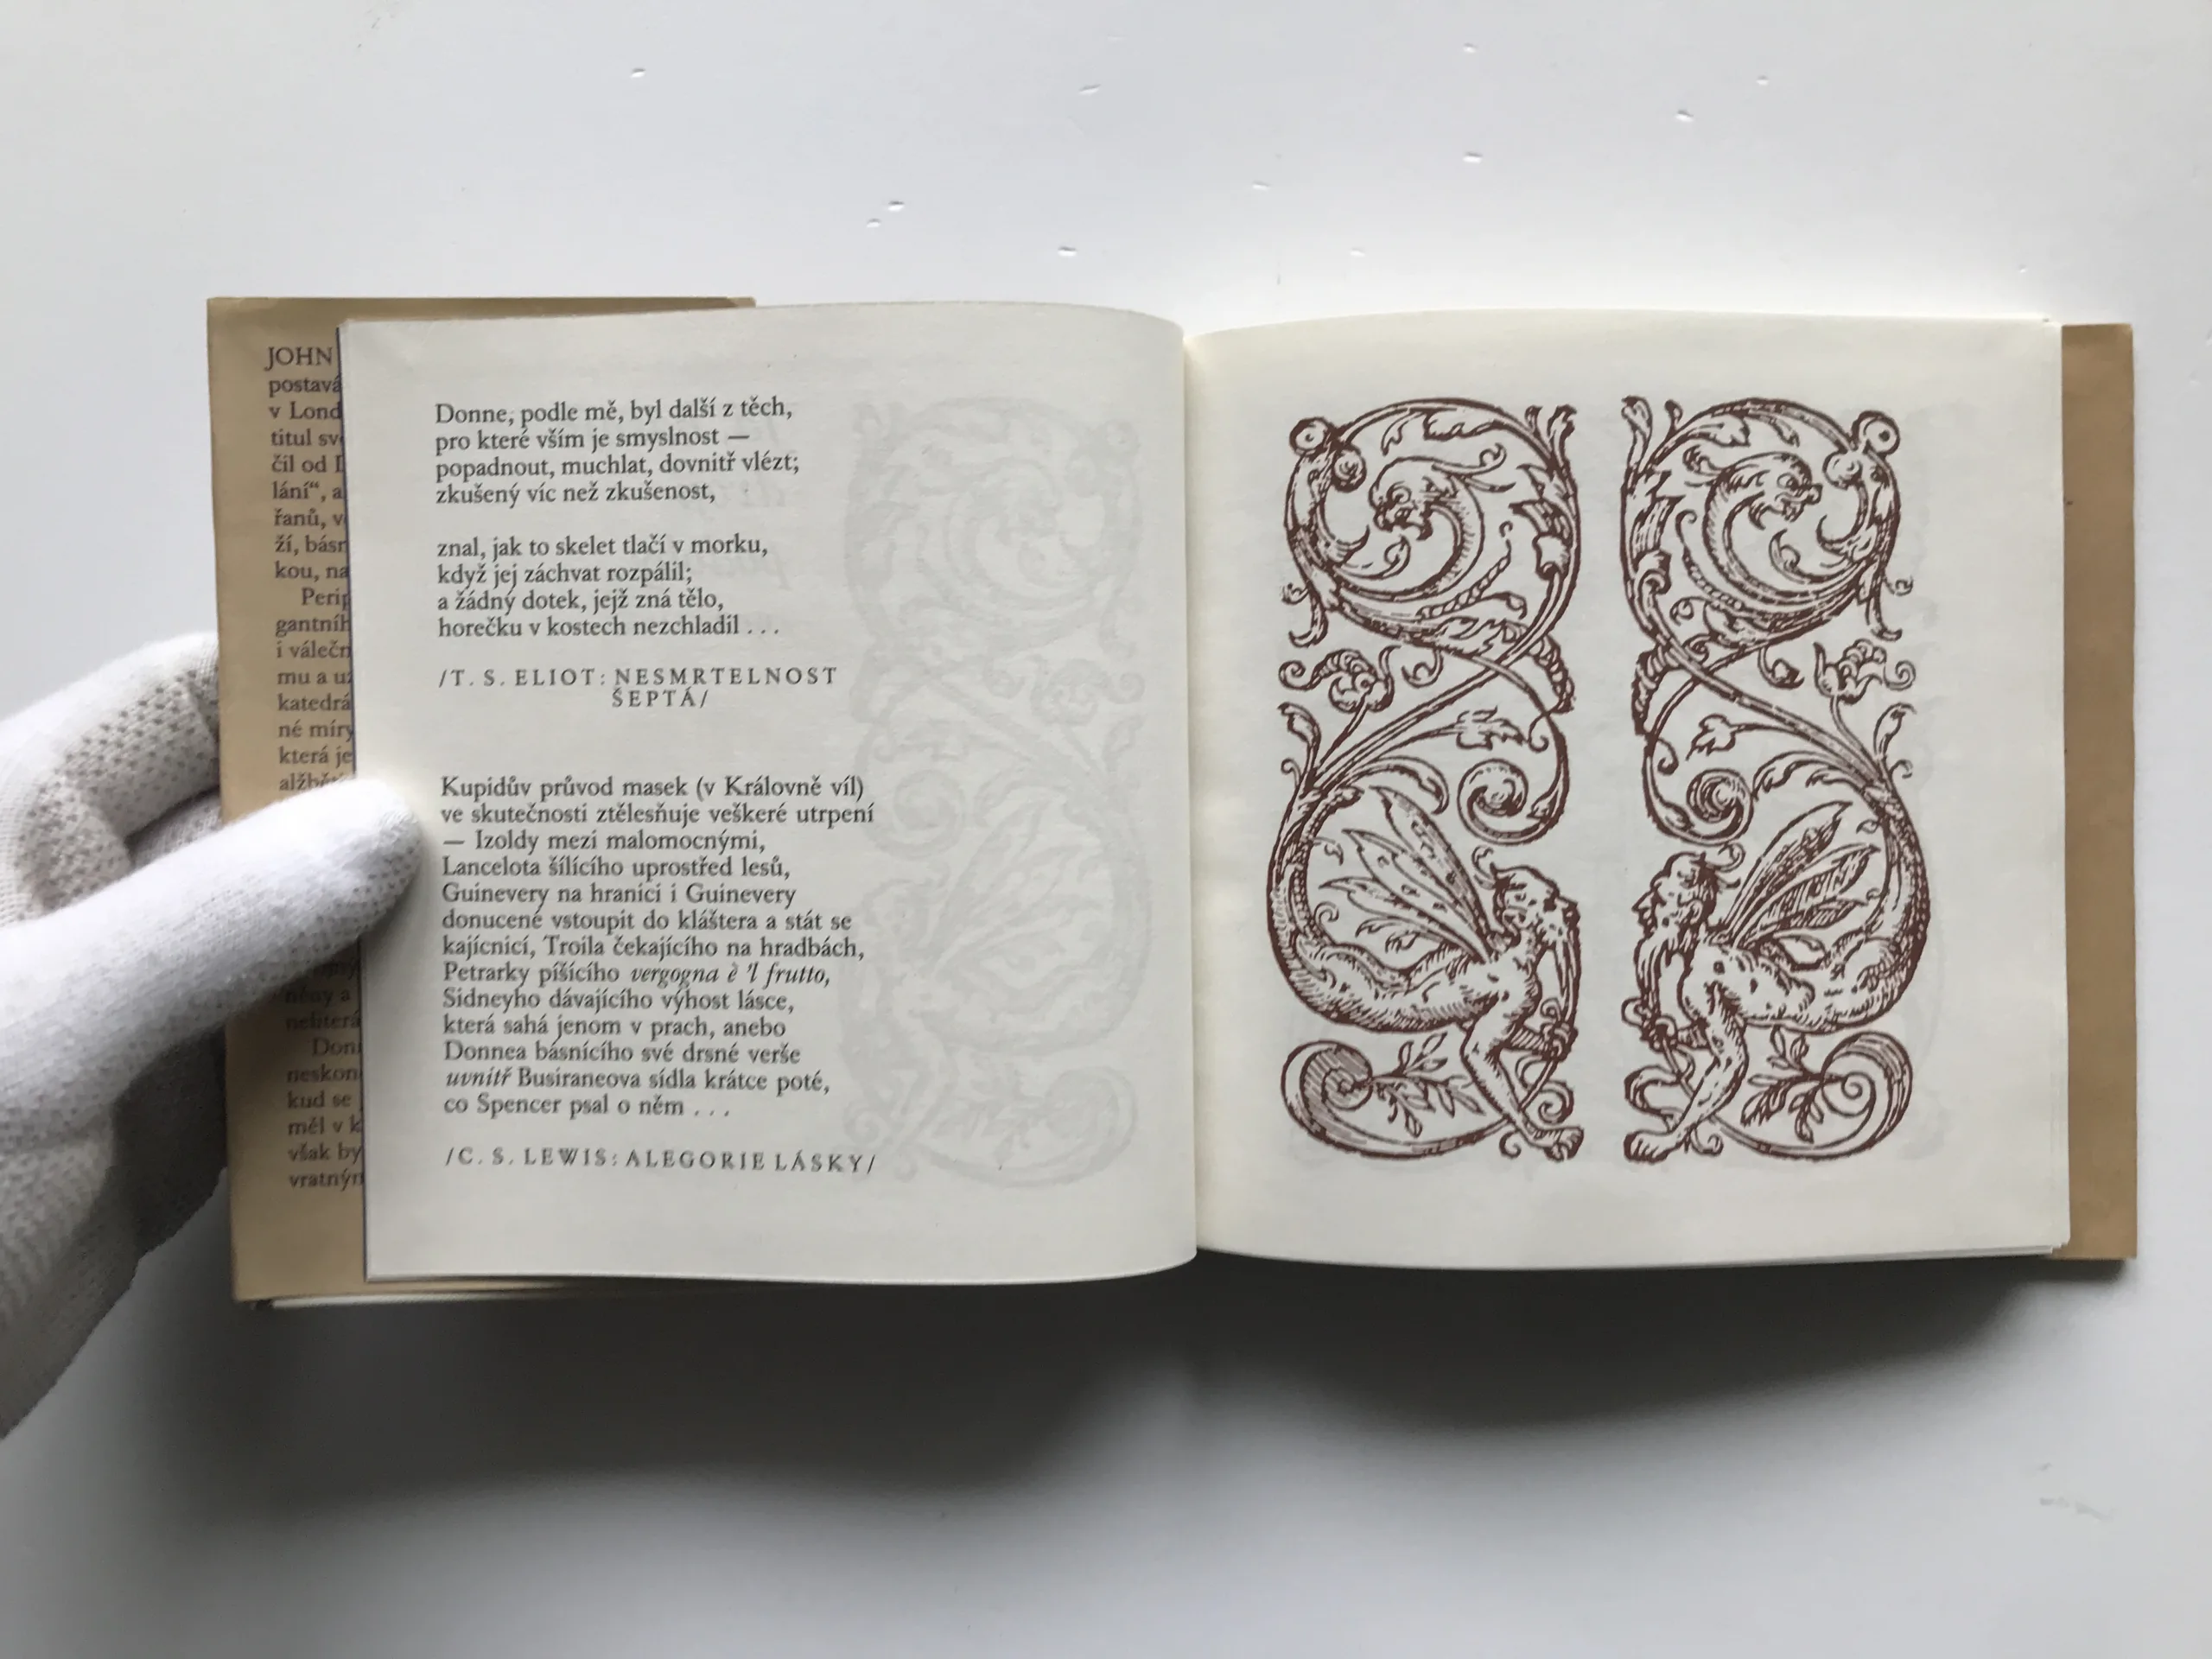 JOHN
v Lond
titul
čil od
lání“, a
řanů,
kou, na
i
mu a
né
která je
Donne, podle mě, byl další z těch,
pro které vším je smyslnost —
popadnout, muchlat, dovnitř vlézt;
zkušený víc než zkušenost,
znal, jak to skelet tlačí v morku,
když jej záchvat rozpálil;
a žádný dotek, jejž zná tělo,
horečku v kostech nezchladil . . .
/T. S. ELIOT: NESMRTELNOST
ŠEPTÁ/
Kupidův průvod masek (v Královně víl)
ve skutečnosti ztělesňuje veškeré utrpení
— Izoldy mezi malomocnými,
Lancelota šílícího uprostřed lesů,
Guinevery na hranici i Guinevery
donucené vstoupit do kláštera a stát se
kajícnicí, Troila čekajícího na hradbách,
Petrarky píšícího vergogna è ’l frutto,
Sidneyho dávajícího výhost lásce,
která sahá jenom v prach, anebo
Donnea básnícího své drsné verše
uvnitř Busiraneova sídla krátce poté,
co Spencer psal o něm . . .
/C. S. LEWIS: ALEGORIE LÁSKY/
kud se
měl v
však by